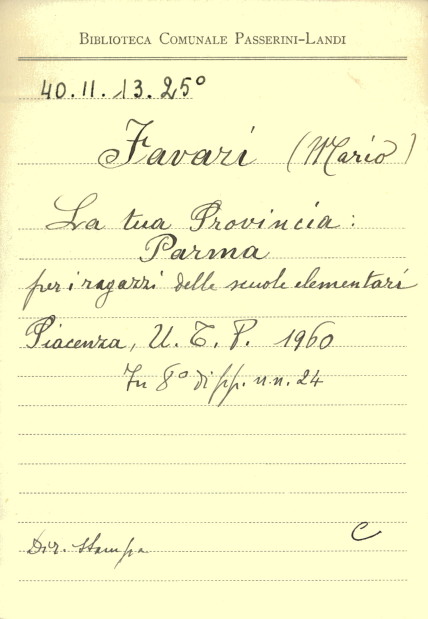 BIBLIOTECA COMUNALE PASSERINI-LANDI
40.II.13.25°
Favari (Mario)
La tua Provincia:
Parma
per i ragazzi delle scuole elementari
Piacenza, U. T. P. 1960
In 8° di pp. n.n. 24
Dir. Stampa
C